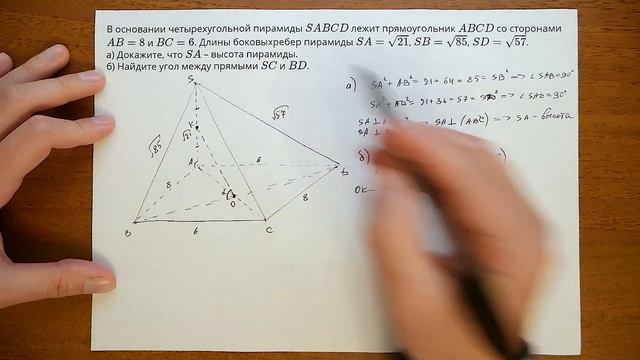 В основании четырехугольной пирамиды SABCD лежит прямоугольник ABCD со сторонами
AB = 8 и BC = 6. Длины боковыхребер пирамиды SA = √21, SB = √85, SD = √57.
а) Докажите, что SA – высота пирамиды.
б) Найдите угол между прямыми SC и BD.
S
√57
K
√21
√85
A
6
D
8
O
8
B
6
C
а) SA² + AB² = 21 + 64 = 85 = SB² => ∠SAB = 90°
SA² + AD² = 21 + 36 = 57 = SD² => ∠SAD = 90°
SA ⊥ => SA ⊥ (ABC) => SA - высота
SA ⊥
б)
OK